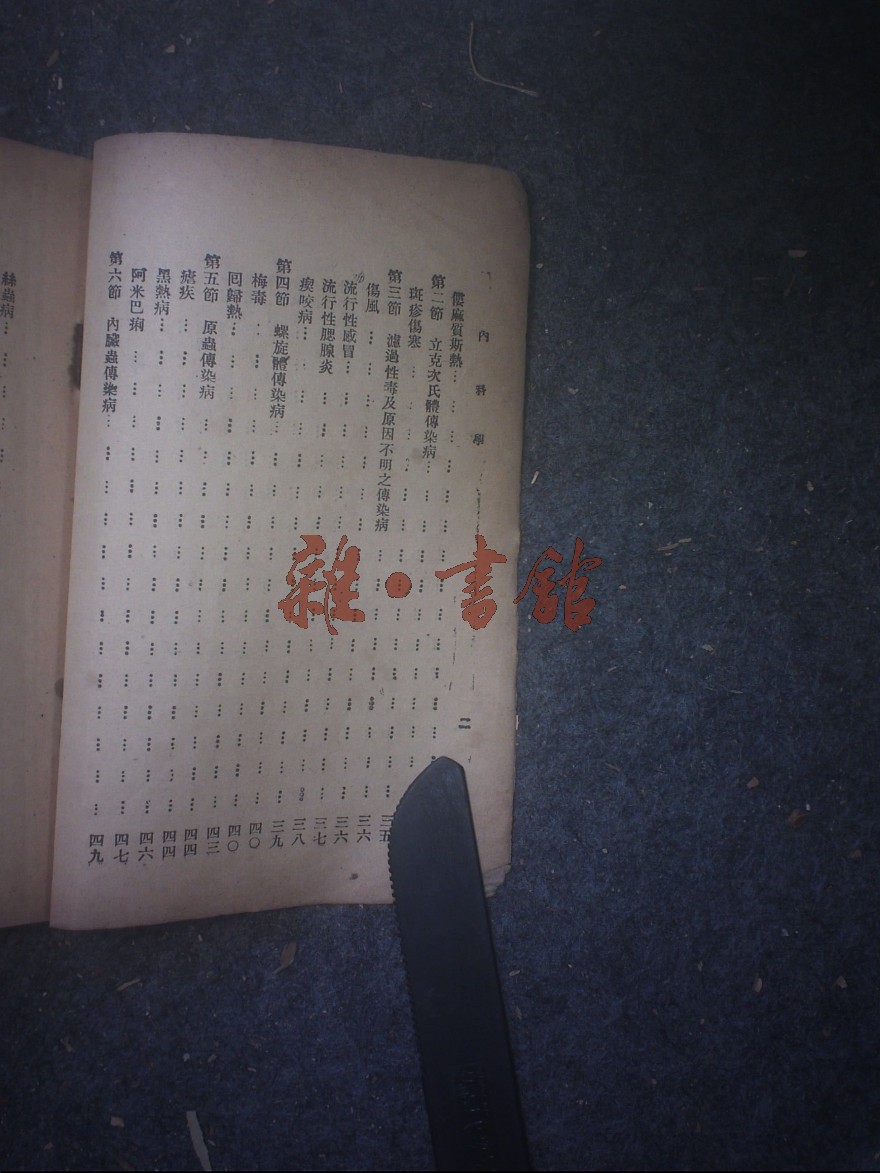 內科學 二
僂麻質斯熱
第二節 立克次氏體傳染病
斑疹傷寒 三五
第三節 濾過性毒及原因不明之傳染病 三六
傷風 三六
流行性感冒 三七
流行性腮腺炎 三八
咬病 三九
第四節 螺旋體傳染病 四〇
梅毒 四〇
回歸熱 四三
第五節 原蟲傳染病 四四
瘧疾 四四
黑熱病 四六
阿米巴痢 四七
第六節 內臟蟲傳染病 四九
絲蟲病
雜·書館